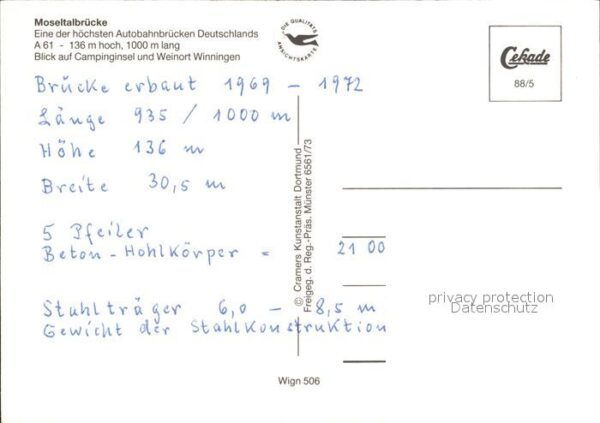 Moseltalbrücke
Eine der höchsten Autobahnbrücken Deutschlands
A 61 - 136 m hoch, 1000 m lang
Blick auf Campinginsel und Weinort Winningen
DIE QUALITÄTS
ANSICHTSKARTE
Cekade
88/5
Brücke erbaut 1969 - 1972
Länge 935 / 1000 m
Höhe 136 m
Breite 30,5 m
5 Pfeiler
Beton-Hohlkörper = 21 00
Stuhlträger 6,0 - 8,5 m
Gewicht der Stahlkonstruktion
© Cramers Kunstanstalt Dortmund
Freigeg. d. Reg.-Präs. Münster 6561/73
privacy protection
Datenschutz
Wign 506